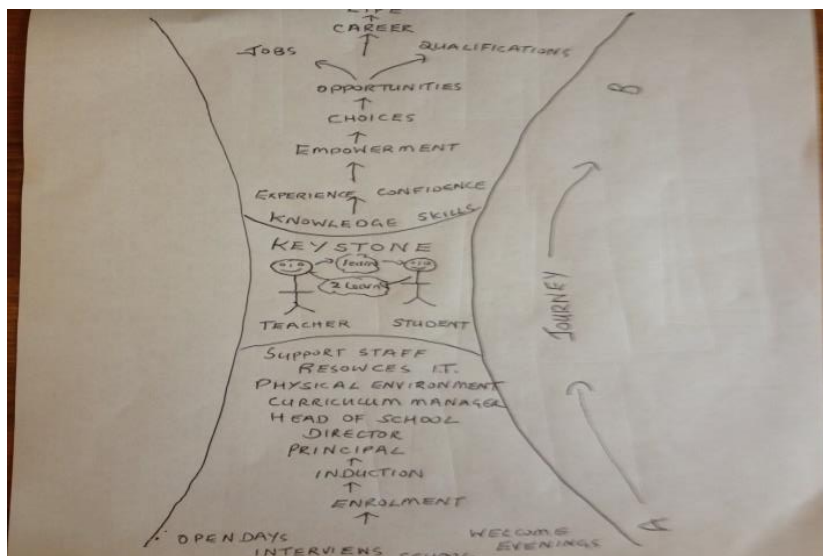 LIFE
CAREER
JOBS QUALIFICATIONS
OPPORTUNITIES
CHOICES
EMPOWERMENT
EXPERIENCE CONFIDENCE
KNOWLEDGE SKILLS
KEYSTONE
learn
2 Learn
TEACHER STUDENT
SUPPORT STAFF
RESOURCES I.T.
PHYSICAL ENVIRONMENT
CURRICULUM MANAGER
HEAD OF SCHOOL
DIRECTOR
PRINCIPAL
INDUCTION
ENROLMENT
OPEN DAYS WELCOME
INTERVIEWS EVENINGS
B
JOURNEY
A